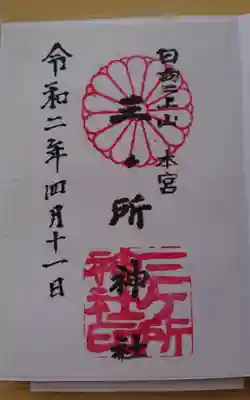 日向二上山 本宮
三ヶ所神社
三ヶ所
神社印
令和二年四月十一日